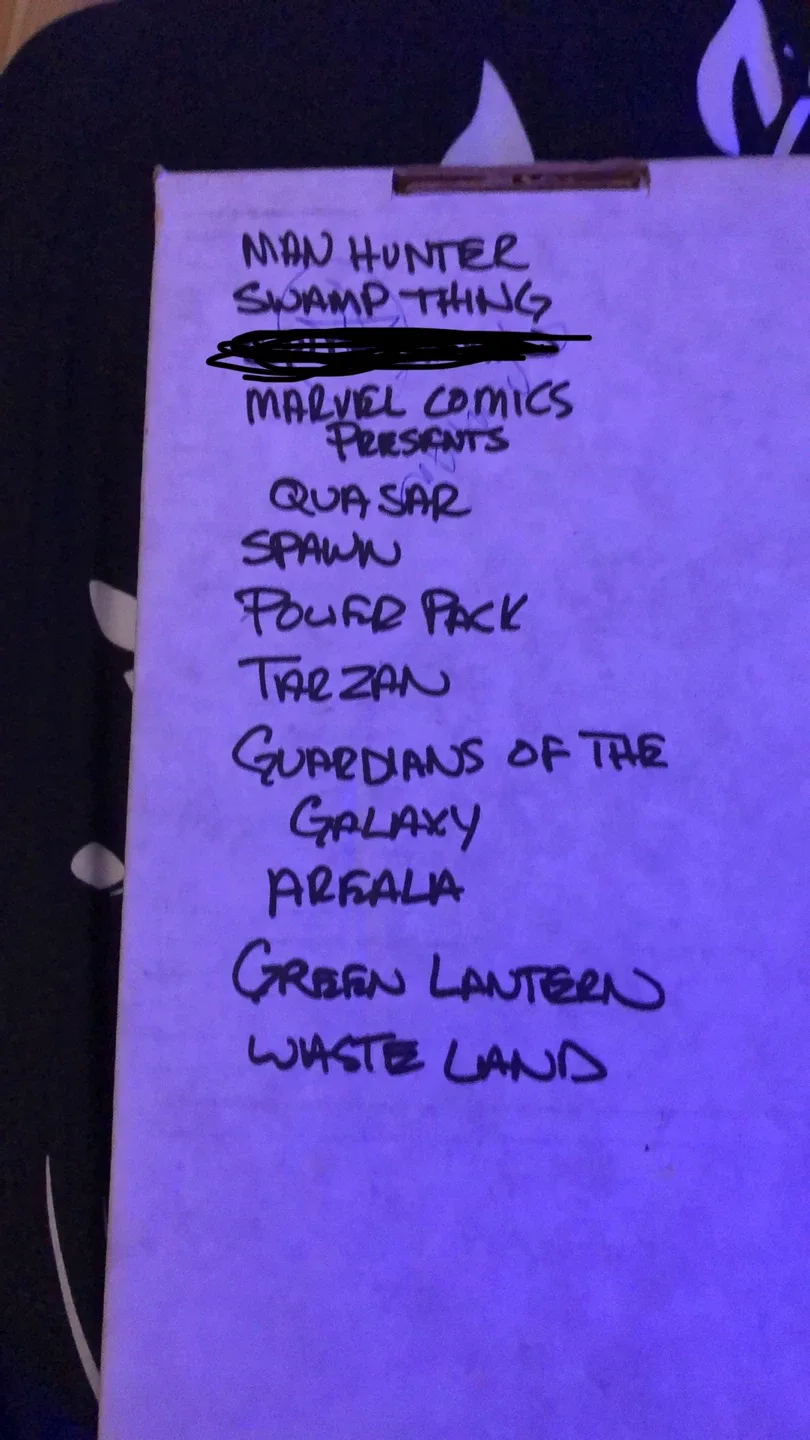 MAN HUNTER
SWAMP THING
MARVEL COMICS
PRESENTS
QUASAR
SPAWN
POWER PACK
TARZAN
GUARDIANS OF THE
GALAXY
AREALA
GREEN LANTERN
WASTE LAND